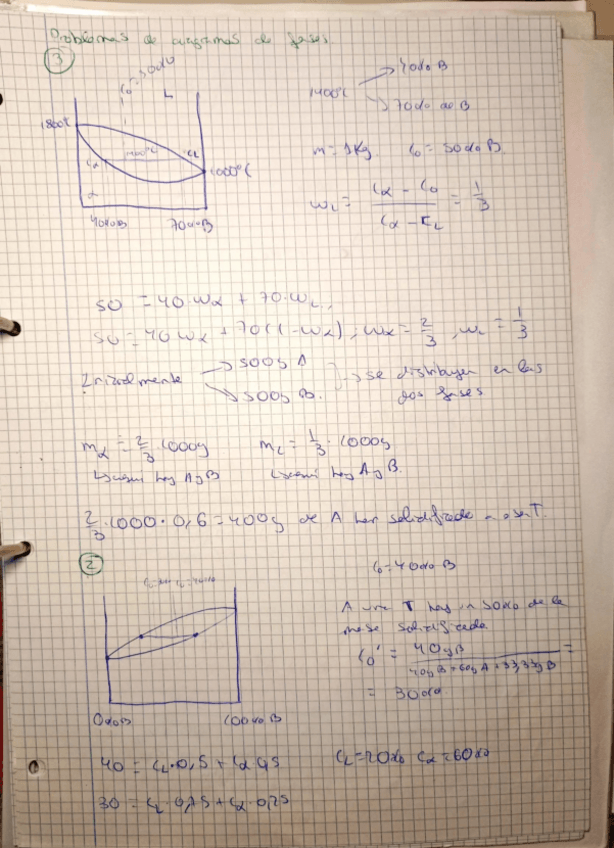 Problemas de diagramas de fases
3
C₀ = 50% B
L
1800°C
1400°C
Cα
CL
1000°C
α
40% B
70% B
1400°C → 40% B
↘ 70% de B
m = 1Kg. C₀ = 50% B
wL = (Cα - C₀) / (Cα - CL) = 1/3
50 = 40·wα + 70·wL
50 = 40 wα + 70(1-wα); wα = 2/3, wL = 1/3
Inicialmente → 500g A
↘ 500g B.
→ se distribuyen en las
dos fases
mα = 2/3 · 1000g mL = 1/3 · 1000g
↳ aquí hay A y B ↳ aquí hay A y B.
2/3 · 1000 · 0,6 = 400g de A han solidificado a esa T.
2
C₀ = 40% B
A una T hay un 50% de la
masa solidificada
C₀' = 40g B / (40g B + 60g A + 33,33g B) =
= 30%
0% B
100% B
40 = CL·0,5 + Cα 0,5 CL = 20% Cα = 60%
30 = CL·0,75 + Cα·0,25